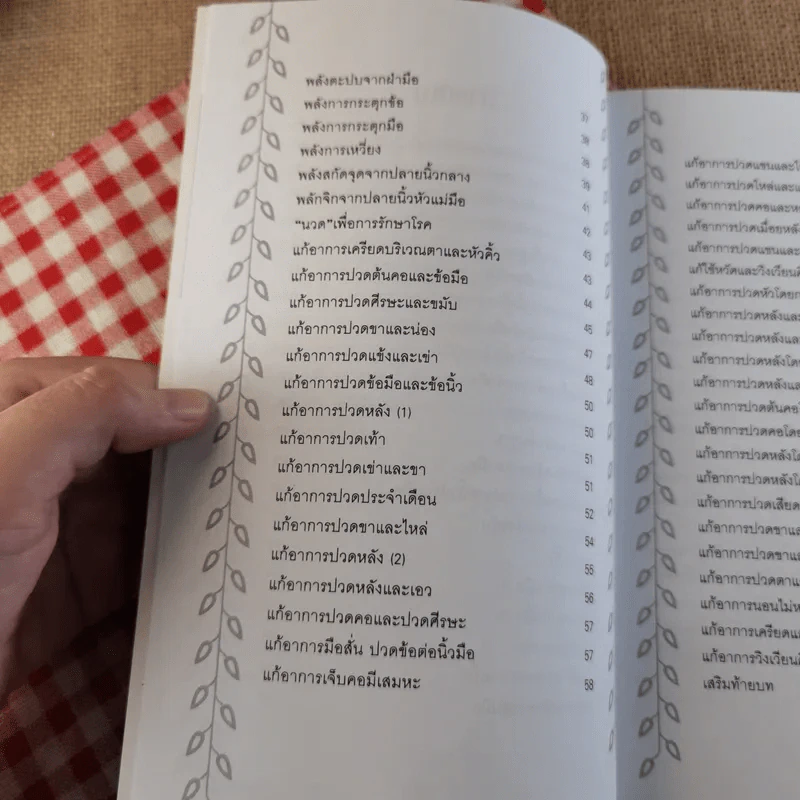 พลังตะปบจากฝ่ามือ 37
พลังการกระตุกข้อ
พลังการกระตุกมือ 38
พลังการเหวี่ยง 39
พลังสกัดจุดจากปลายนิ้วกลาง 41
พลักจิกจากปลายนิ้วหัวแม่มือ 42
“นวด”เพื่อการรักษาโรค 43
แก้อาการเครียดบริเวณตาและหัวคิ้ว 43
แก้อาการปวดต้นคอและข้อมือ 44
แก้อาการปวดศีรษะและขมับ 45
แก้อาการปวดขาและน่อง 47
แก้อาการปวดแข้งและเข่า 48
แก้อาการปวดข้อมือและข้อนิ้ว 50
แก้อาการปวดหลัง (1) 50
แก้อาการปวดเท้า 51
แก้อาการปวดเข่าและขา 51
แก้อาการปวดประจำเดือน 52
แก้อาการปวดขาและไหล่ 54
แก้อาการปวดหลัง (2) 55
แก้อาการปวดหลังและเอว 56
แก้อาการปวดคอและปวดศีรษะ 57
แก้อาการมือสั่น ปวดข้อต่อนิ้วมือ 57
แก้อาการเจ็บคอมีเสมหะ 58
แก้อาการปวดแขนและ
แก้อาการปวดไหล่และ
แก้อาการปวดคอและ
แก้อาการปวดเมื่อยหลัง
แก้อาการปวดแขนและ
แก้ไข้หวัดและวิงเวียน
แก้อาการปวดหัวโดย
แก้อาการปวดหลังและ
แก้อาการปวดหลังและ
แก้อาการปวดหลังโดย
แก้อาการปวดหลังและ
แก้อาการปวดต้นคอ
แก้อาการปวดคอโดย
แก้อาการปวดหลังโดย
แก้อาการปวดหลังโดย
แก้อาการปวดเสียด
แก้อาการปวดขาและ
แก้อาการปวดขาและ
แก้อาการปวดตาและ
แก้อาการนอนไม่
แก้อาการเครียด
แก้อาการวิงเวียน
เสริมท้ายบท